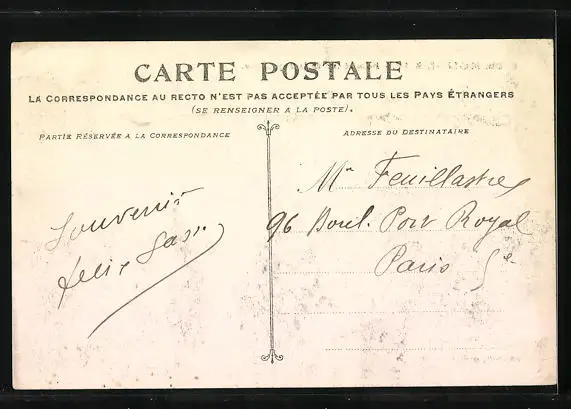 CARTE POSTALE
LA CORRESPONDANCE AU RECTO N'EST PAS ACCEPTÉE PAR TOUS LES PAYS ÉTRANGERS
(SE RENSEIGNER A LA POSTE).
PARTIE RÉSERVÉE A LA CORRESPONDANCE
ADRESSE DU DESTINATAIRE
Souvenir
Felix
Mr Feuillastre
96 Boul. Port Royal
Paris 5e